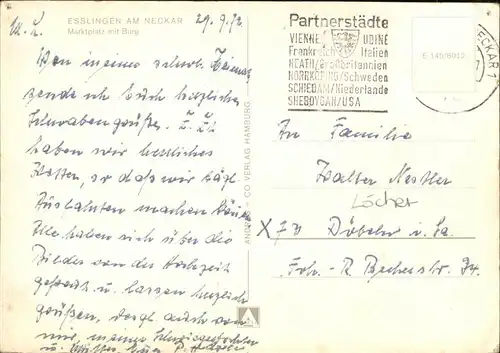 ESSLINGEN AM NECKAR
Marktplatz mit Burg
29.9.72
Von meine schwb. Heimat
sende ich Euch herzliche
Schwabengrüße. Z. Zt.
haben wir herrliches
Wetter, so daß wir tägl.
Ausfahrten machen
Alle haben sich über die
Bilder von der Hochzeit
gefreut u. lassen herzlich
grüßen, auch von
mir, meine
u.
ANDRES + CO VERLAG HAMBURG
Partnerstädte
VIENNE UDINE
Frankreich Italien
NEATH/Großbritannien
NORRKÖPING/Schweden
SCHIEDAM/Niederlande
SHEBOYGAN/USA
NECKAR 1
E 145/8012
An Familie
Walter Nestler
Löcher
X 73 Döbeln i. Sa.
Joh.-R. Becherstr. 34.